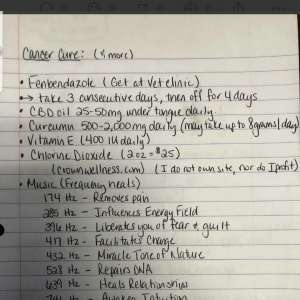 Cancer Cure: (& more)
• Fenbendazole (Get at Vet clinic)
→ take 3 consecutive days, then off for 4 days
• CBD oil 25-50mg under tongue daily
• Curcumin 500-2,000mg daily (may take up to 8 grams/day)
• Vitamin E (400 IU daily)
• Chlorine Dioxide (2 oz = $25)
(krownwellness.com) (I do not own site, nor do I profit)
• Music (Frequency heals)
174 Hz - Removes pain
285 Hz - Influences Energy Field
396 Hz - Liberates you of fear & guilt
417 Hz - Facilitates Change
432 Hz - Miracle Tone of Nature
528 Hz - Repairs DNA
639 Hz - Heals Relationships
741 Hz - Awaken Intuition